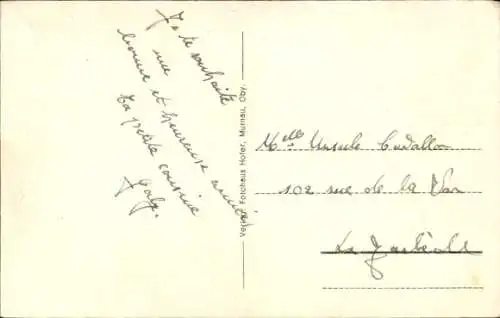 Je te souhaite
une
bonne et heureuse année
Ta petite cousine
Verlag Fotohaus Hofer, Murnau, Oby.
Melle Ursule Cudallon
102 rue de la Var
La